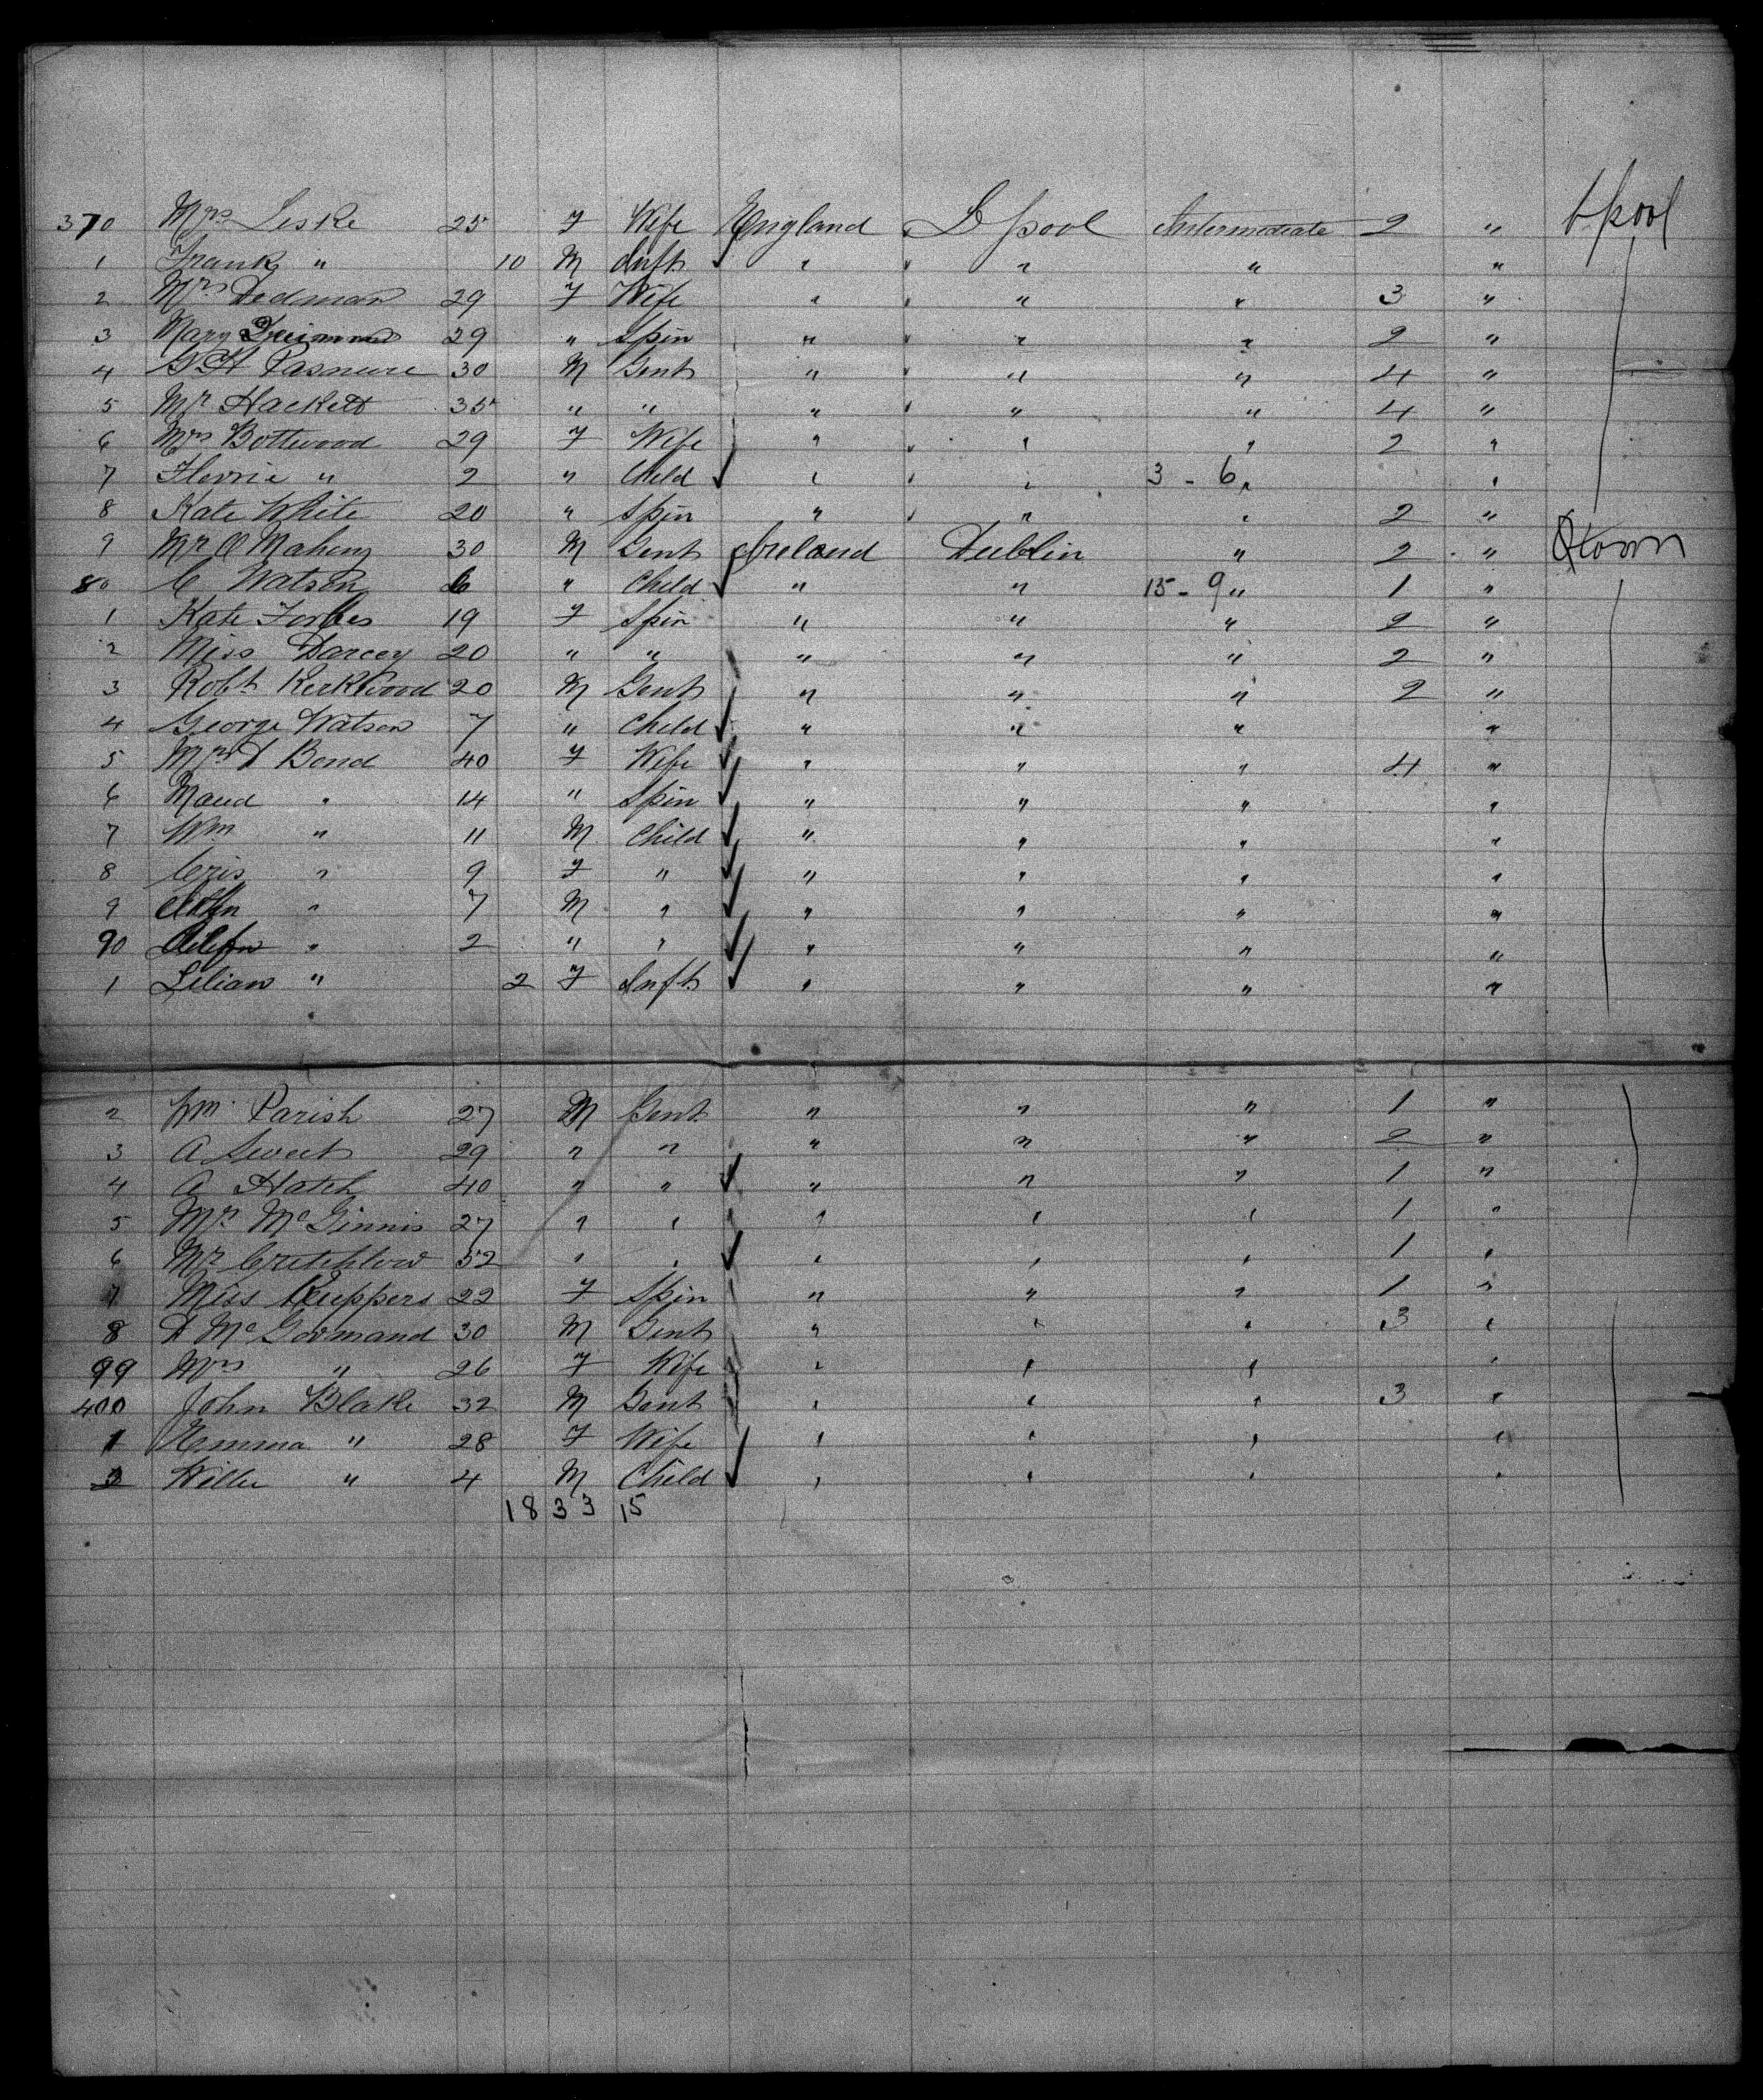 370 Mrs Leske 25 F Wife England L'pool Intermediate 2 " L'pool
1 Frank " 10 M Inft " " " "
2 Mrs Dedman 29 F Wife " " " 3 "
3 Mary 29 " Spin " " " 2 "
4 G H 30 M Gent " " " 4 "
5 Mr Hackett 35 " " " " " 4 "
6 Mrs Bottwood 29 F Wife " " " 2 "
7 Florrie " 2 " Child " " 3 - 6 " "
8 Kate White 20 " Spin " " " 2 "
9 Mr O Mahony 30 M Gent Ireland Dublin " 2 " Qtown
80 C Watson 6 " Child " " 15 - 9 " 1 "
1 Kate Forbes 19 F Spin " " " 2 "
2 Miss Darcey 20 " " " " " 2 "
3 Robt Kirkwood 20 M Gent " " " 2 "
4 George Watson 7 " Child " " " "
5 Mrs Bond 40 F Wife " " " 4 "
6 Maud " 14 " Spin " " " "
7 Wm " 11 M Child " " " "
8 Cris " 9 F " " " " "
9 " 7 M " " " " "
90 " 2 " " " " " "
1 Lilian " 2 F Inft " " " "
2 Wm Parish 27 M Gent " " " 1 "
3 A Sweet 29 " " " " " 2 "
4 A Hatch 40 " " " " " 1 "
5 Mr McGinnis 27 " " " " " 1 "
6 Mr Critchlow 52 " " " " " 1 "
7 Miss Kuppers 22 F Spin " " " 1 "
8 D McGormand 30 M Gent " " " 3 "
99 Mrs " 26 F Wife " " " "
400 John Blake 32 M Gent " " " 3 "
1 Emma " 28 F Wife " " " "
2 Willie " 4 M Child " " " "
18 33 15